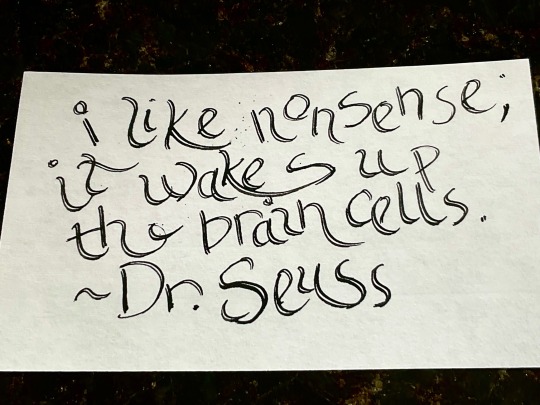 i like nonsense;
it wakes up
the brain cells.
~Dr. Seuss